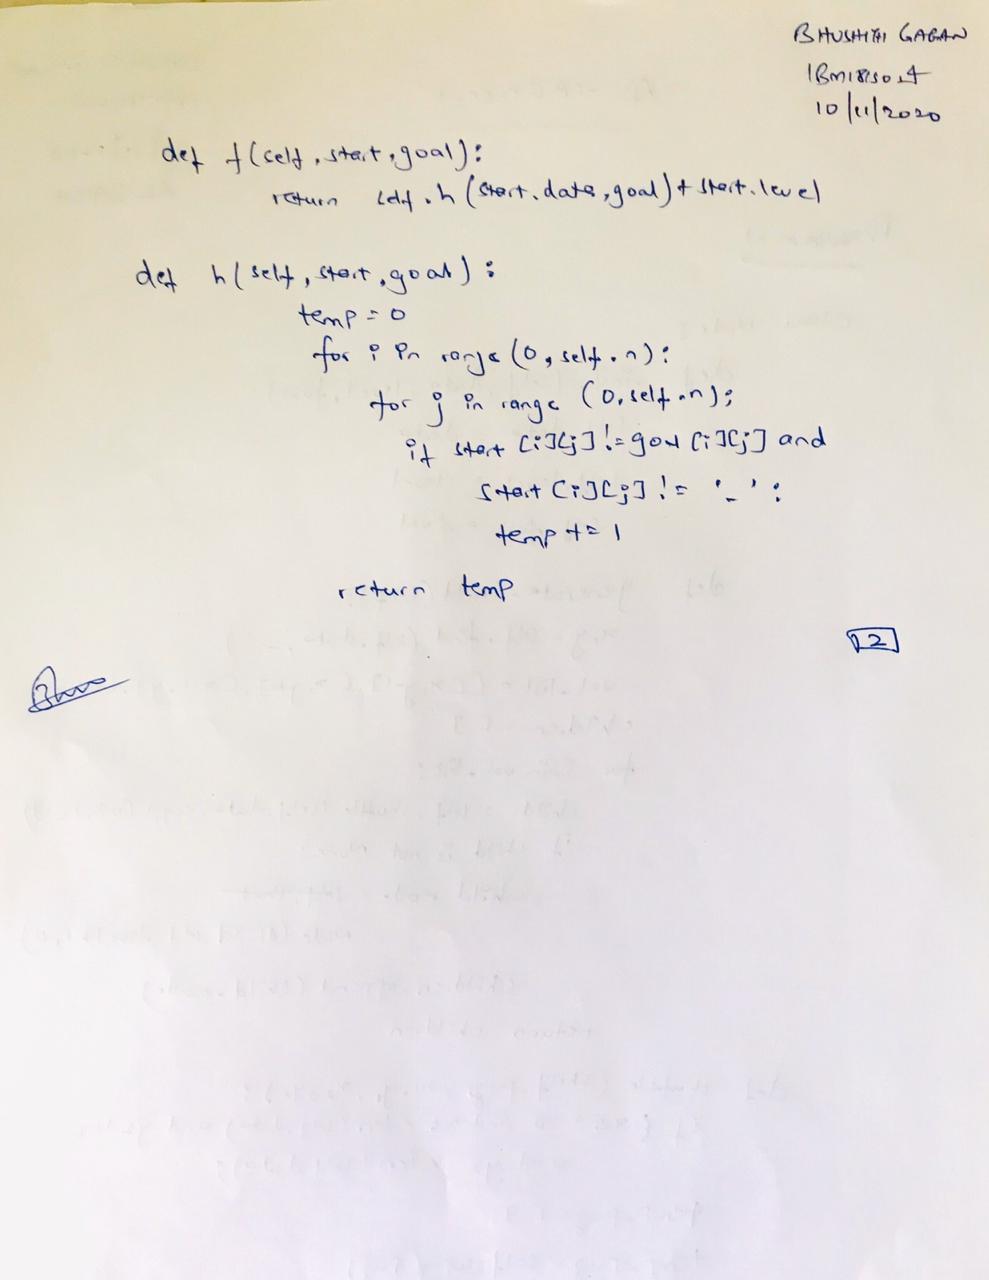 GAGAN
10/11/2020
def f(self, start, goal):
return self.h(start.data, goal) + start.level
def h(self, start, goal):
temp = 0
for i in range(0, self.n):
for j in range (0, self.n):
if start [i][j] != goal [i][j] and
start [i][j] != '_' :
temp += 1
return temp
12